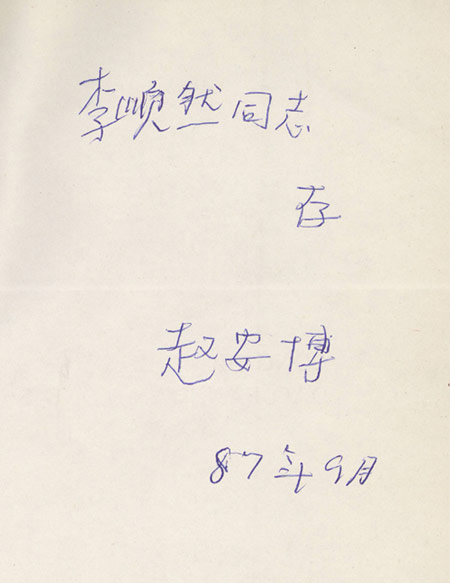 李顺然同志
存
赵安博
87年9月